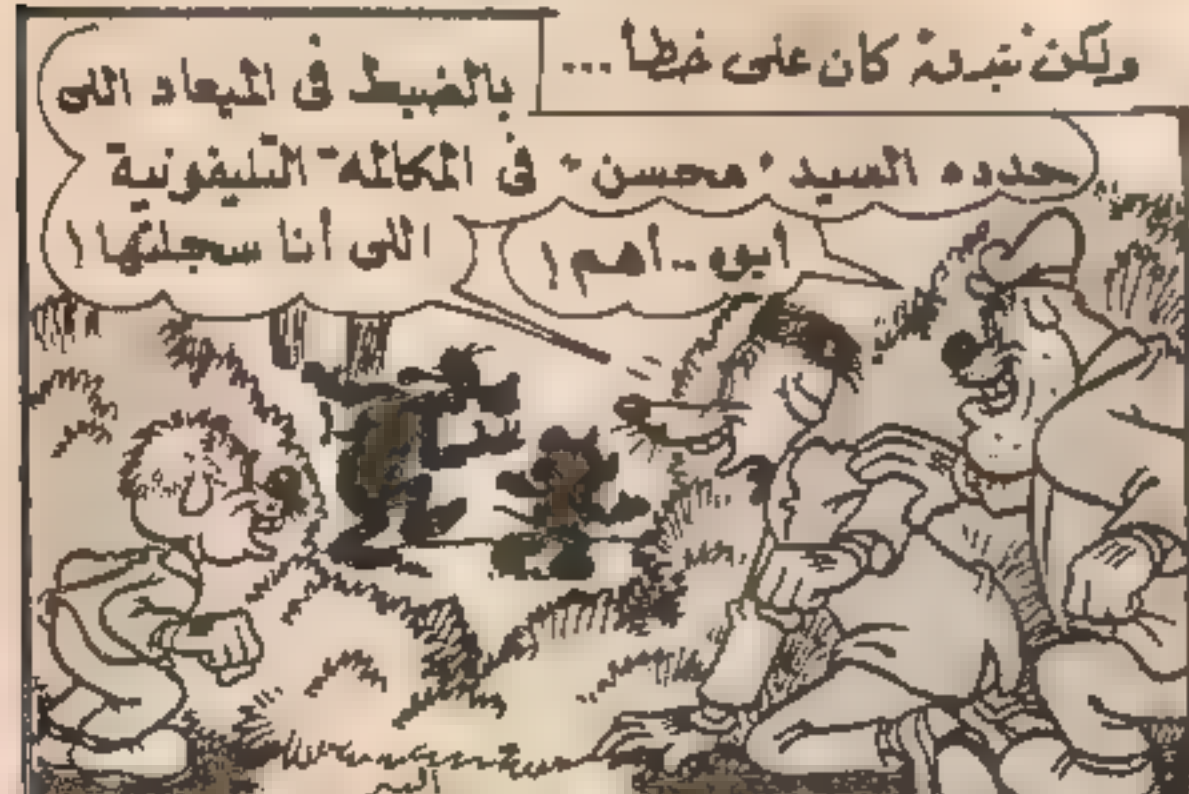 ولكن بندق كان على خطأ...
أيوه.. أهم!
بالضبط فى الميعاد اللى
حدده السيد "محسن" فى المكالمة التليفونية
اللى أنا سجلتها!